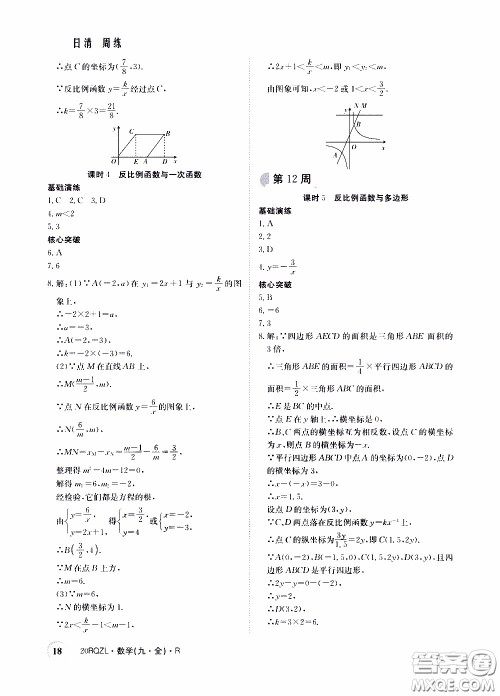 日清 周练
∴点C的坐标为(7/8,3).
∵反比例函数y=k/x经过点C,
∴k=7/8×3=21/8.
y
C
B
O
E
A
D
x
课时4 反比例函数与一次函数
基础演练
1.C 2.C 3.D
4.m<2
5.3
核心突破
6.A
7.6
8.解:(1)∵A(-2,a)在y₁=2x+1与y₂=k/x的图
象上,
∴-2×2+1=a,
∴a=-3,
∴A(-2,-3),
∴k=-2×(-3)=6.
(2)∵点M在直线AB上,
∴M((m-1)/2,m).
∵点N在反比例函数y=6/x的图象上,
∴N(6/m,m),
∴MN=x_M-x_N=(m-1)/2-6/m=3/2,
整理得m²-4m-12=0,
解得m₁=6,m₂=-2,
经检验,它们都是方程的根.
由{y=6/x, y=2x+1, 得{x=3/2, y=4 或{x=-2, y=-3.
∴B(3/2,4).
∵M在点B上方,
∴m=6.
(3)∵m=6,
∴N的横坐标为1.
∴2x+1<k/x<m,即y₁<y₂<m.
由图象可知,x<-2或1<x<3/2.
y
N
M
B
O
x
A
第12周
课时5 反比例函数与多边形
基础演练
1.A
2.2
3.D
4.y=-3/x
核心突破
5.B
6.-6
7.3
8.解:∵四边形AECD的面积是三角形ABE面积的
3倍,
∴三角形ABE的面积=1/4×平行四边形ABCD的
面积=1/2×三角形ABC的面积,
∴E是BC的中点.
∵点E在y轴上,∴横坐标是0,
∴B、C两点的横坐标互为相反数,设点C的横坐标
为x,则点B的横坐标为-x.
∵平行四边形ABCD中点A的坐标为(0,-2),且
面积为3,
∴x-(-x)=3,
∴x=1.5.
设点D的坐标为(2x,y),
∵C、D两点落在反比例函数y=kx⁻¹上,
∴点C的纵坐标为3y/1.5=2y,即C(1.5,2y).
∵A(0,-2),B(-1.5,0),C(1.5,2y),D(3,y),且四
边形ABCD是平行四边形,
∴2y-y=0-(-2),
∴y=2,
∴k=3×2=6.
18
20RQZL·数学(九·全)·R